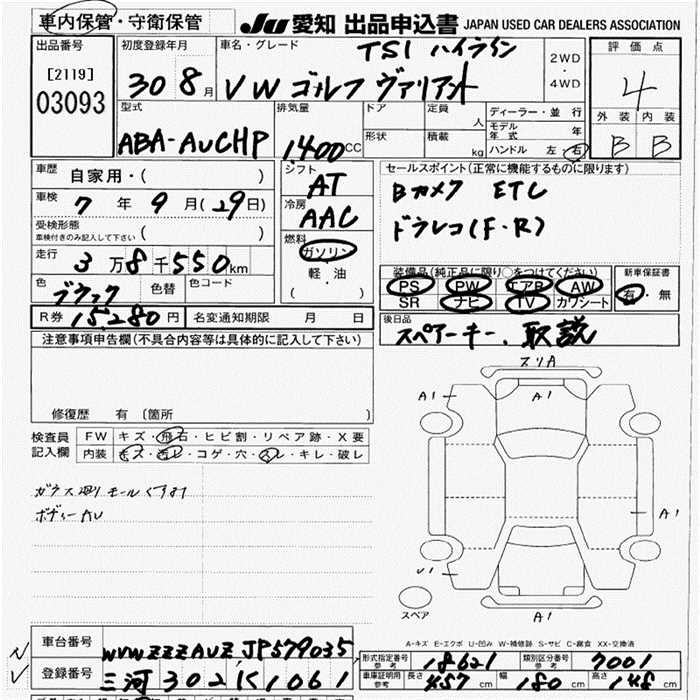 車内保管・守衛保管
JU 愛知 出品申込書 JAPAN USED CAR DEALERS ASSOCIATION
出品番号 [2119] 03093
初度登録年月 30 8月
車名・グレード TSI ハイライン
VW ゴルフ ヴァリアント
2WD・4WD
評価点 4
外装 内装
B B
型式 ABA-AUCHP
排気量 1,400CC
ドア 定員 人
形状 積載 kg
ディーラー・並行
モデル年式 年
ハンドル 左・右
車歴 自家用・( )
車検 7年9月(29日)
受検形態 車検付きのみ記入して下さい ( )
走行 3万8千550km
色 ブラック 色替 色コード
R券 15,280円 名変通知期限 月 日
シフト AT
冷房 AAC
燃料 ガソリン
軽・油
( )
セールスポイント(正常に機能するものに限ります)
Bカメラ ETC
ドラレコ(F・R)
装備品(純正品に限り○をつけてください)
PS PW エアB AW
SR ナビ TV カワシート
新車保証書 有・無
後日品
スペアーキー、取説
注意事項申告欄(不具合内容等は具体的に記入して下さい)
修復歴 有 〔箇所
検査員記入欄
FW キズ・飛石・ヒビ割・リペア跡・X要
内装 キズ・汚レ・コゲ・穴・スレ・キレ・破レ
ガラス廻りモールくすみ
ボディーAU
スリA
A1
A1
A1
U1
A1
スペア
A-キズ E-エクボ U-凹み W-補修跡 S-サビ C-腐食 XX-交換済
車台番号 WVWZZZAUZJP579035
登録番号 三河 302 K1061
形式指定番号 参考 18621
類別区分番号 参考 7001
車庫証明用 参考 長さ 457cm 幅 180cm 高さ 148cm